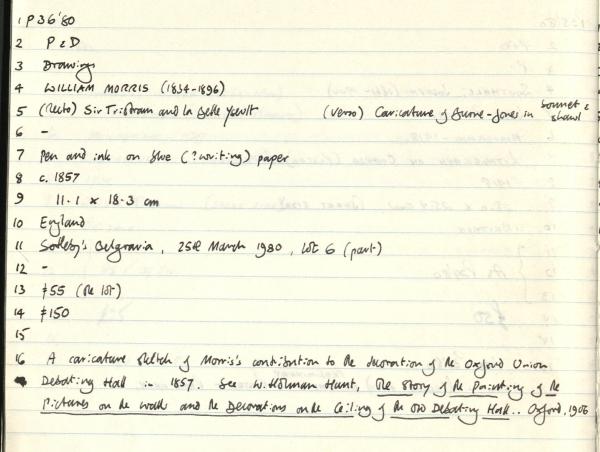 1 P36'80
2 P & D
3 Drawings
4 WILLIAM MORRIS (1834-1896)
5 (Recto) Sir Tristram and la Belle Yseult (Verso) Caricature of Burne-Jones in bonnet & shawl
6 -
7 Pen and ink on blue (?writing) paper
8 c. 1857
9 11.1 x 18.3 cm
10 England
11 Sotheby's Belgravia, 25th March 1980, Lot 6 (part)
12 -
13 £55 (the lot)
14 £150
15
16 A caricature sketch of Morris's contribution to the decoration of the Oxford Union
Debating Hall in 1857. See W. Holman Hunt, The Story of the Painting of the
Pictures on the walls and the Decorations on the Ceiling of the Old Debating Hall.. Oxford, 1906